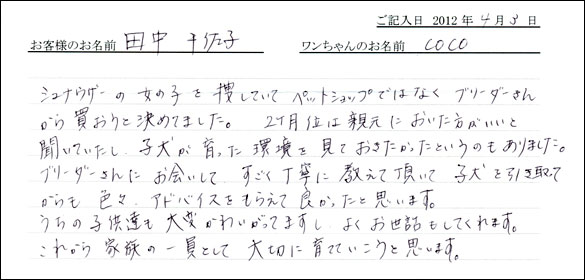 ご記入日 2012年 4月 3日
お客様のお名前 田中 千佐子 ワンちゃんのお名前 COCO
シュナウザーの女の子を捜していてペットショップではなくブリーダーさん
から買おうと決めてました。 2ヶ月位は親元においた方がいいと
聞いていたし、子犬が育った環境を見ておきたかったというのもありました。
ブリーダーさんにお会いして、すごく丁寧に教えて頂いて子犬を引き取って
からも色々、アドバイスをもらえて良かったと思います。
うちの子供達も大変かわいがってますし、よくお世話もしてくれます。
これから家族の一員として大切に育てていこうと思います。